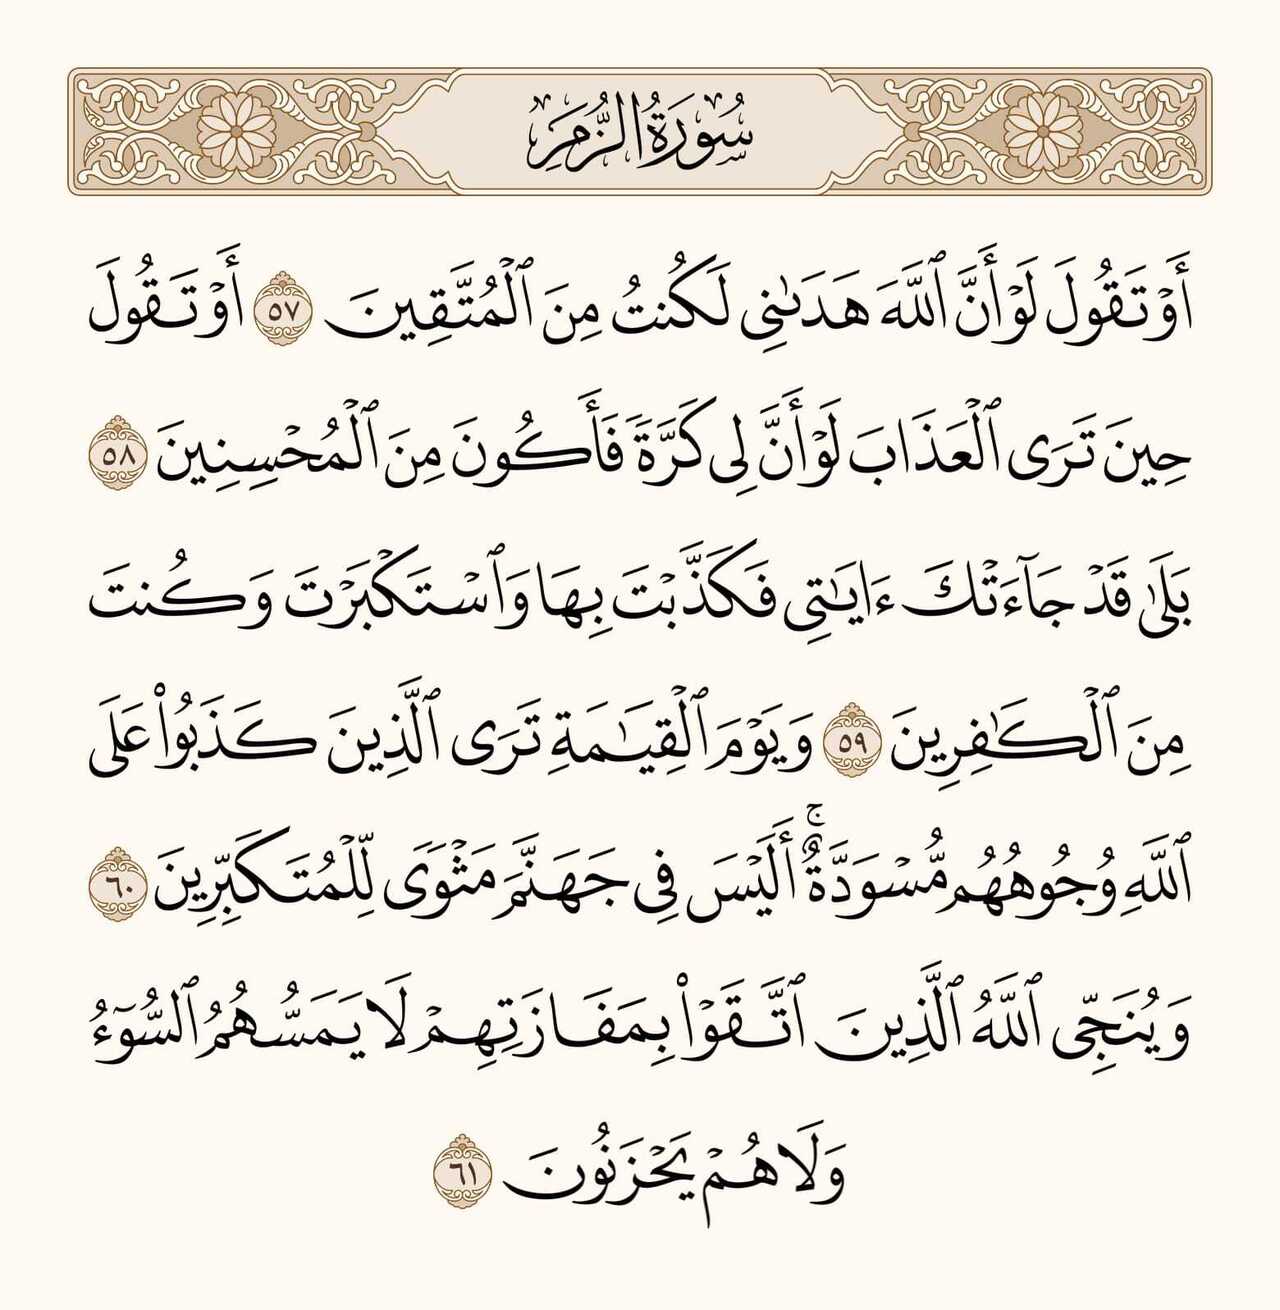 سُورَةُ الزُّمَرِ
أَوْ تَقُولَ لَوْ أَنَّ ٱللَّهَ هَدَىٰنِى لَكُنتُ مِنَ ٱلْمُتَّقِينَ ٥٧ أَوْ تَقُولَ
حِينَ تَرَى ٱلْعَذَابَ لَوْ أَنَّ لِى كَرَّةً فَأَكُونَ مِنَ ٱلْمُحْسِنِينَ ٥٨
بَلَىٰ قَدْ جَآءَتْكَ ءَايَٰتِى فَكَذَّبْتَ بِهَا وَٱسْتَكْبَرْتَ وَكُنتَ
مِنَ ٱلْكَٰفِرِينَ ٥٩ وَيَوْمَ ٱلْقِيَٰمَةِ تَرَى ٱلَّذِينَ كَذَبُوا۟ عَلَى
ٱللَّهِ وُجُوهُهُم مُّسْوَدَّةٌ ۚ أَلَيْسَ فِى جَهَنَّمَ مَثْوًى لِّلْمُتَكَبِّرِينَ ٦٠
وَيُنَجِّى ٱللَّهُ ٱلَّذِينَ ٱتَّقَوْا۟ بِمَفَازَتِهِمْ لَا يَمَسُّهُمُ ٱلسُّوٓءُ
وَلَا هُمْ يَحْزَنُونَ ٦١